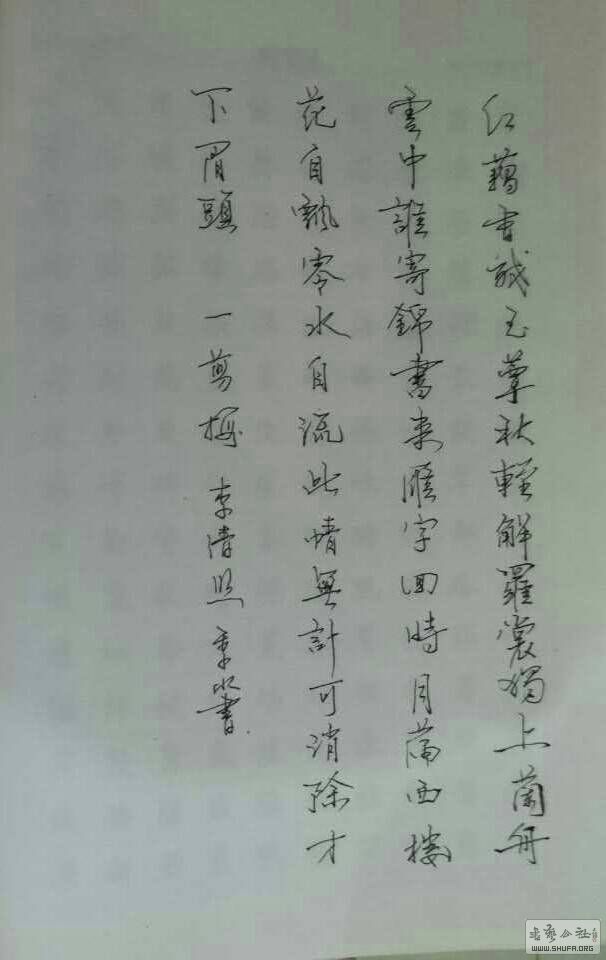 红藕香殘玉簟秋輕解羅裳獨上蘭舟
雲中誰寄錦書来雁字回時月滿西樓
花自飄零水自流此情無計可消除才
下眉頭 一剪梅 李清照 書
书艺公社
WWW.SHUFA.ORG